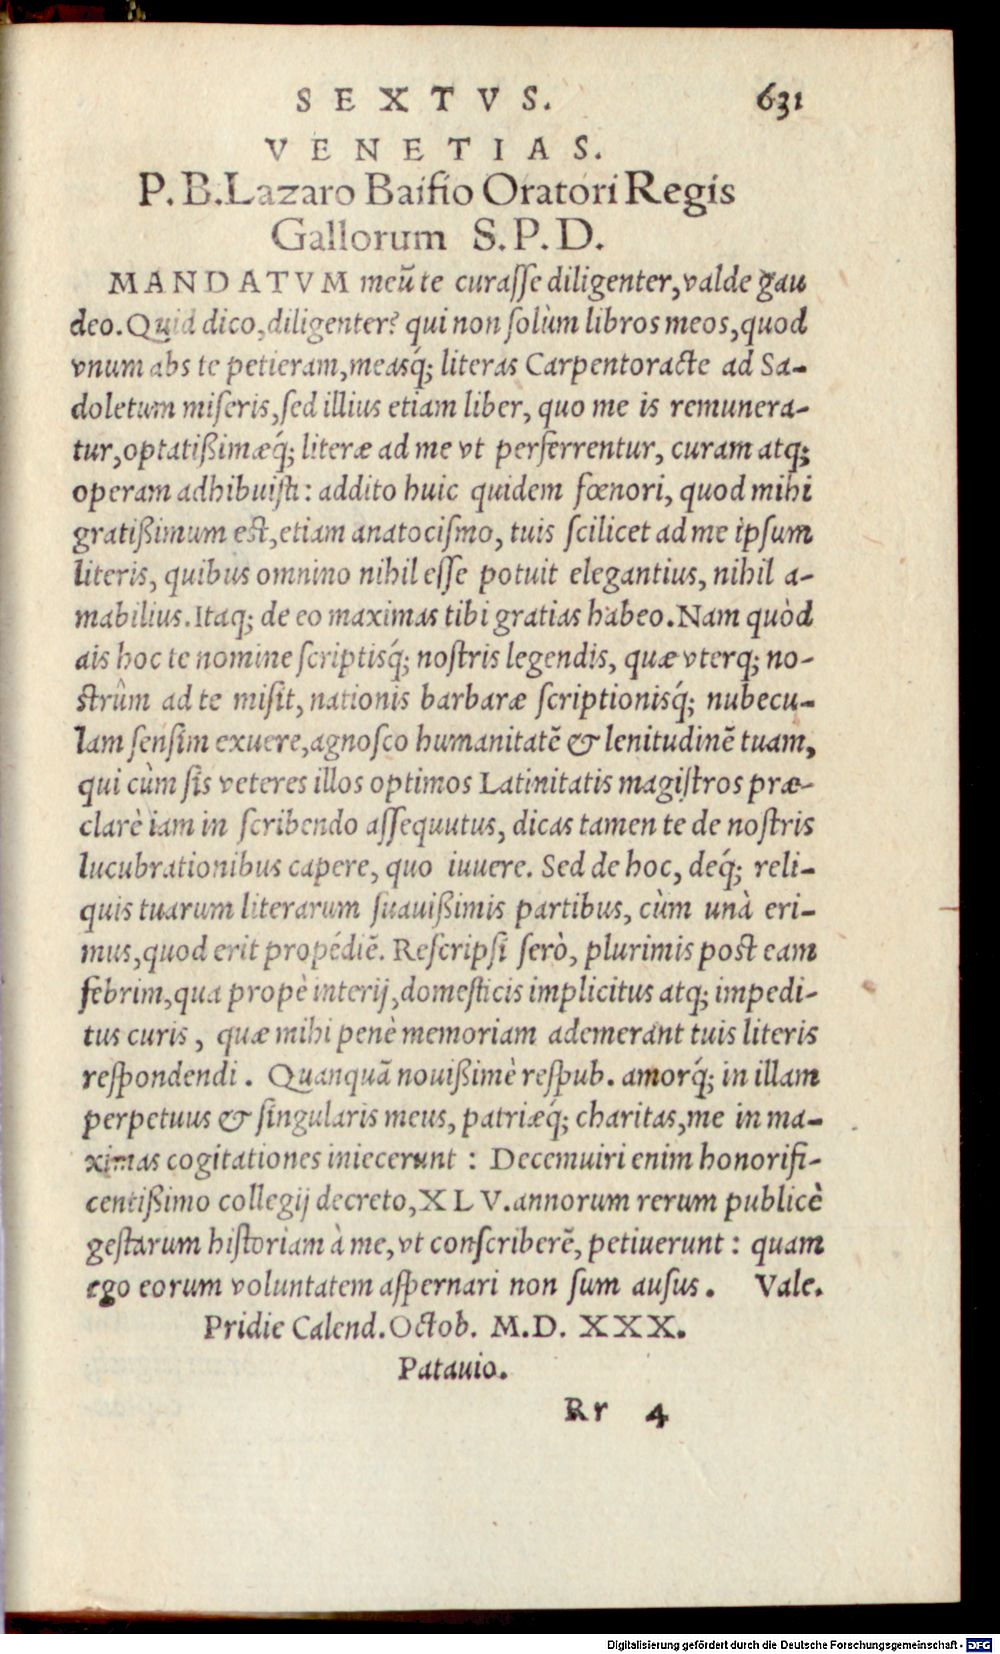 SEXTVS. 631
VENETIAS.
P. B. Lazaro Baifio Oratori Regis
Gallorum S. P. D.
MANDATVM meũ te curaſſe diligenter, valde gau
deo. Quid dico, diligenter? qui non ſolùm libros meos, quod
vnum abs te petieram, measq́; literas Carpentoracte ad Sa-
doletum miſeris, ſed illius etiam liber, quo me is remunera-
tur, optatißimæq́; literæ ad me vt perferrentur, curam atq;
operam adhibuiſti: addito huic quidem fœnori, quod mihi
gratißimum est, etiam anatociſmo, tuis ſcilicet ad me ipſum
literis, quibus omnino nihil eſſe potuit elegantius, nihil a-
mabilius. Itaq; de eo maximas tibi gratias habeo. Nam quòd
ais hoc te nomine ſcriptisq́; noſtris legendis, quæ vterq; no-
ſtrûm ad te miſit, nationis barbaræ ſcriptionisq́; nubecu-
lam ſenſim exuere, agnoſco humanitatẽ & lenitudinẽ tuam,
qui cùm ſis veteres illos optimos Latinitatis magiſtros præ-
clarè iam in ſcribendo aſſequutus, dicas tamen te de noſtris
lucubrationibus capere, quo iuuere. Sed de hoc, deq́; reli-
quis tuarum literarum ſuauißimis partibus, cùm unà eri-
mus, quod erit propédiẽ. Reſcripſi ſerò, plurimis post eam
febrim, qua propè interij, domeſticis implicitus atq; impedi-
tus curis, quæ mihi penè memoriam ademerant tuis literis
reſpondendi. Quanquã nouißimè reſpub. amorq́; in illam
perpetuus & ſingularis meus, patriæq́; charitas, me in ma-
ximas cogitationes iniecerunt: Decemuiri enim honorifi-
centißimo collegij decreto, XLV. annorum rerum publicè
geſtarum hiſtoriam à me, vt conſcriberẽ, petiuerunt: quam
ego eorum voluntatem aſpernari non ſum auſus. Vale.
Pridie Calend. Octob. M. D. XXX.
Patauio.
Rr 4
Digitalisierung gefördert durch die Deutsche Forschungsgemeinschaft - DFG